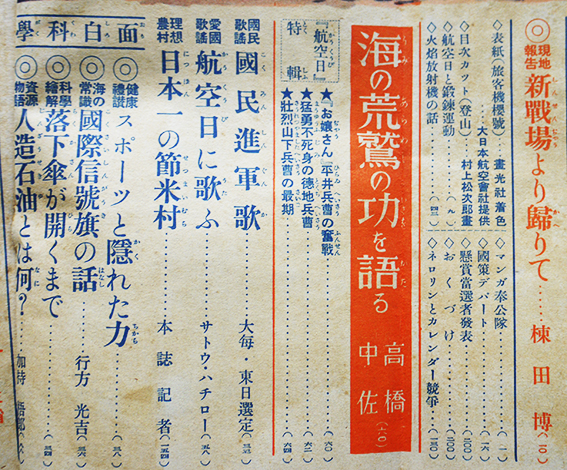 ◎現地報告 新戰場より歸りて……棟田博(一〇)
◇表紙(旅客機櫻號)……畫光社着色
大日本航空會社提供
◇目次カット(登山)……村上松次郎畫
◇航空日と鍛錬運動
◇火焰放射機の話
◇マンガ奉公隊
◇國策デパート
◇懸賞當選者發表
◇おくづけ
◇ネロリンとカレンダー競爭
海の荒鷲の功を語る 高橋中佐(六〇)
『航空日』特輯
★『お孃さん』平井兵曹の奮戰
★猛勇不死身の德地兵曹
★壯烈山下兵曹の最期
國民歌謠 國民進軍歌……大每・東日選定
愛國歌謠 航空日に歌ふ……サトウ・ハチロー
理想農村 日本一の節米村……本誌記者
面白科學
◎健康禮讃 スポーツと隱れた力
◎海の常識 國際信號旗の話……行方光吉
◎科學繪解 落下傘が開くまで
◎資源物語 人造石油とは何?……加持